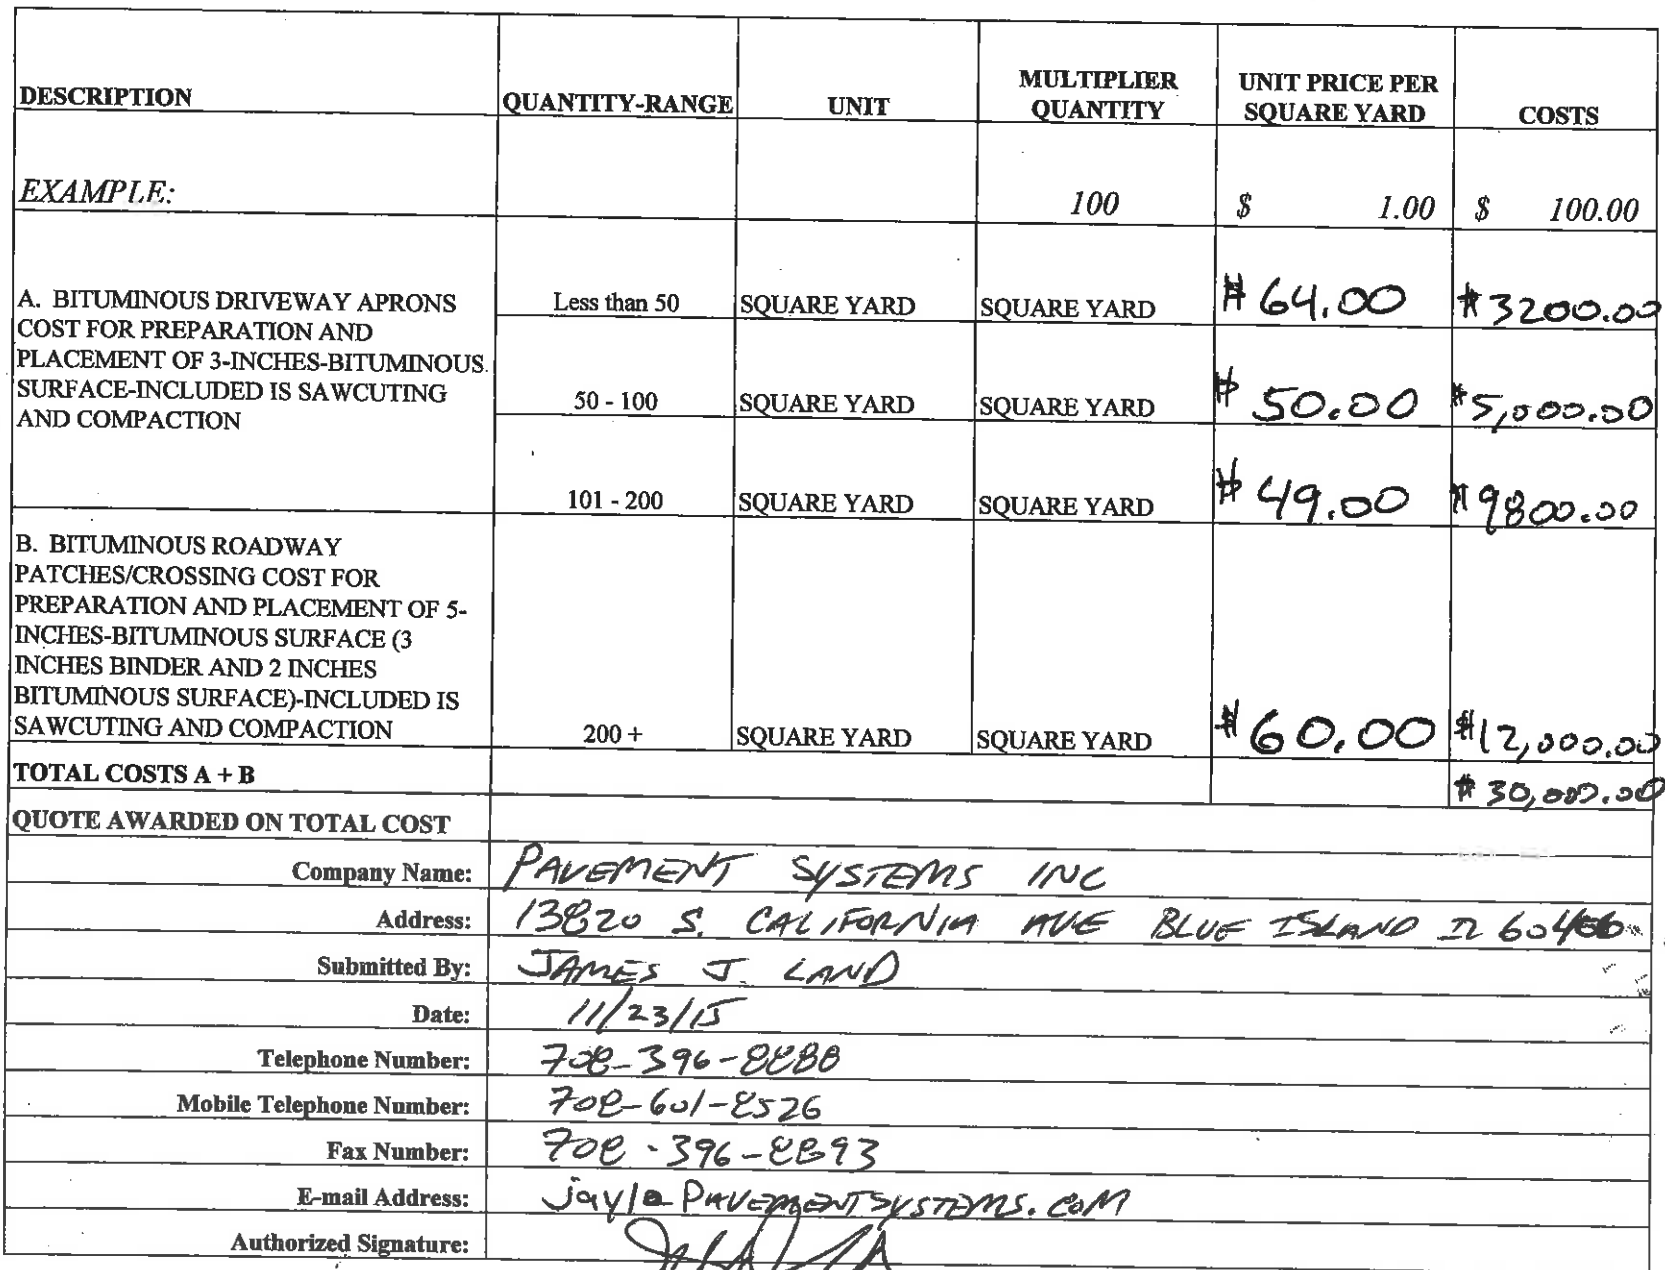 DESCRIPTION QUANTITY-RANGE UNIT MULTIPLIER QUANTITY UNIT PRICE PER SQUARE YARD COSTS
EXAMPLE: 100 $ 1.00 $ 100.00
A. BITUMINOUS DRIVEWAY APRONS Less than 50 SQUARE YARD SQUARE YARD $64.00 $3200.00
COST FOR PREPARATION AND
PLACEMENT OF 3-INCHES-BITUMINOUS
SURFACE-INCLUDED IS SAWCUTING 50 - 100 SQUARE YARD SQUARE YARD $50.00 $5,000.00
AND COMPACTION
101 - 200 SQUARE YARD SQUARE YARD $49.00 $9800.00
B. BITUMINOUS ROADWAY
PATCHES/CROSSING COST FOR
PREPARATION AND PLACEMENT OF 5-
INCHES-BITUMINOUS SURFACE (3
INCHES BINDER AND 2 INCHES
BITUMINOUS SURFACE)-INCLUDED IS
SAWCUTING AND COMPACTION 200 + SQUARE YARD SQUARE YARD $60.00 $12,000.00
TOTAL COSTS A + B $30,000.00
QUOTE AWARDED ON TOTAL COST
Company Name: PAVEMENT SYSTEMS INC
Address: 13820 S. CALIFORNIA AVE BLUE ISLAND IL
Submitted By: JAMES J. LAND
Date: 11/23/15
Telephone Number: 708-396-8888
Mobile Telephone Number: 708-601-8526
Fax Number: 708-396-8893
E-mail Address: jayl@PAVEMENTSYSTEMS.COM
Authorized Signature: